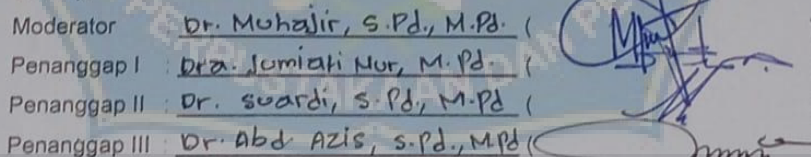 Moderator Dr. Muhajir, S.Pd., M.Pd. (
Penanggap I : Dra. Jumiati Nur, M.Pd. (
Penanggap II : Dr. Suardi, S.Pd., M.Pd (
Penanggap III : Dr. Abd. Azis, S.Pd., M.Pd (